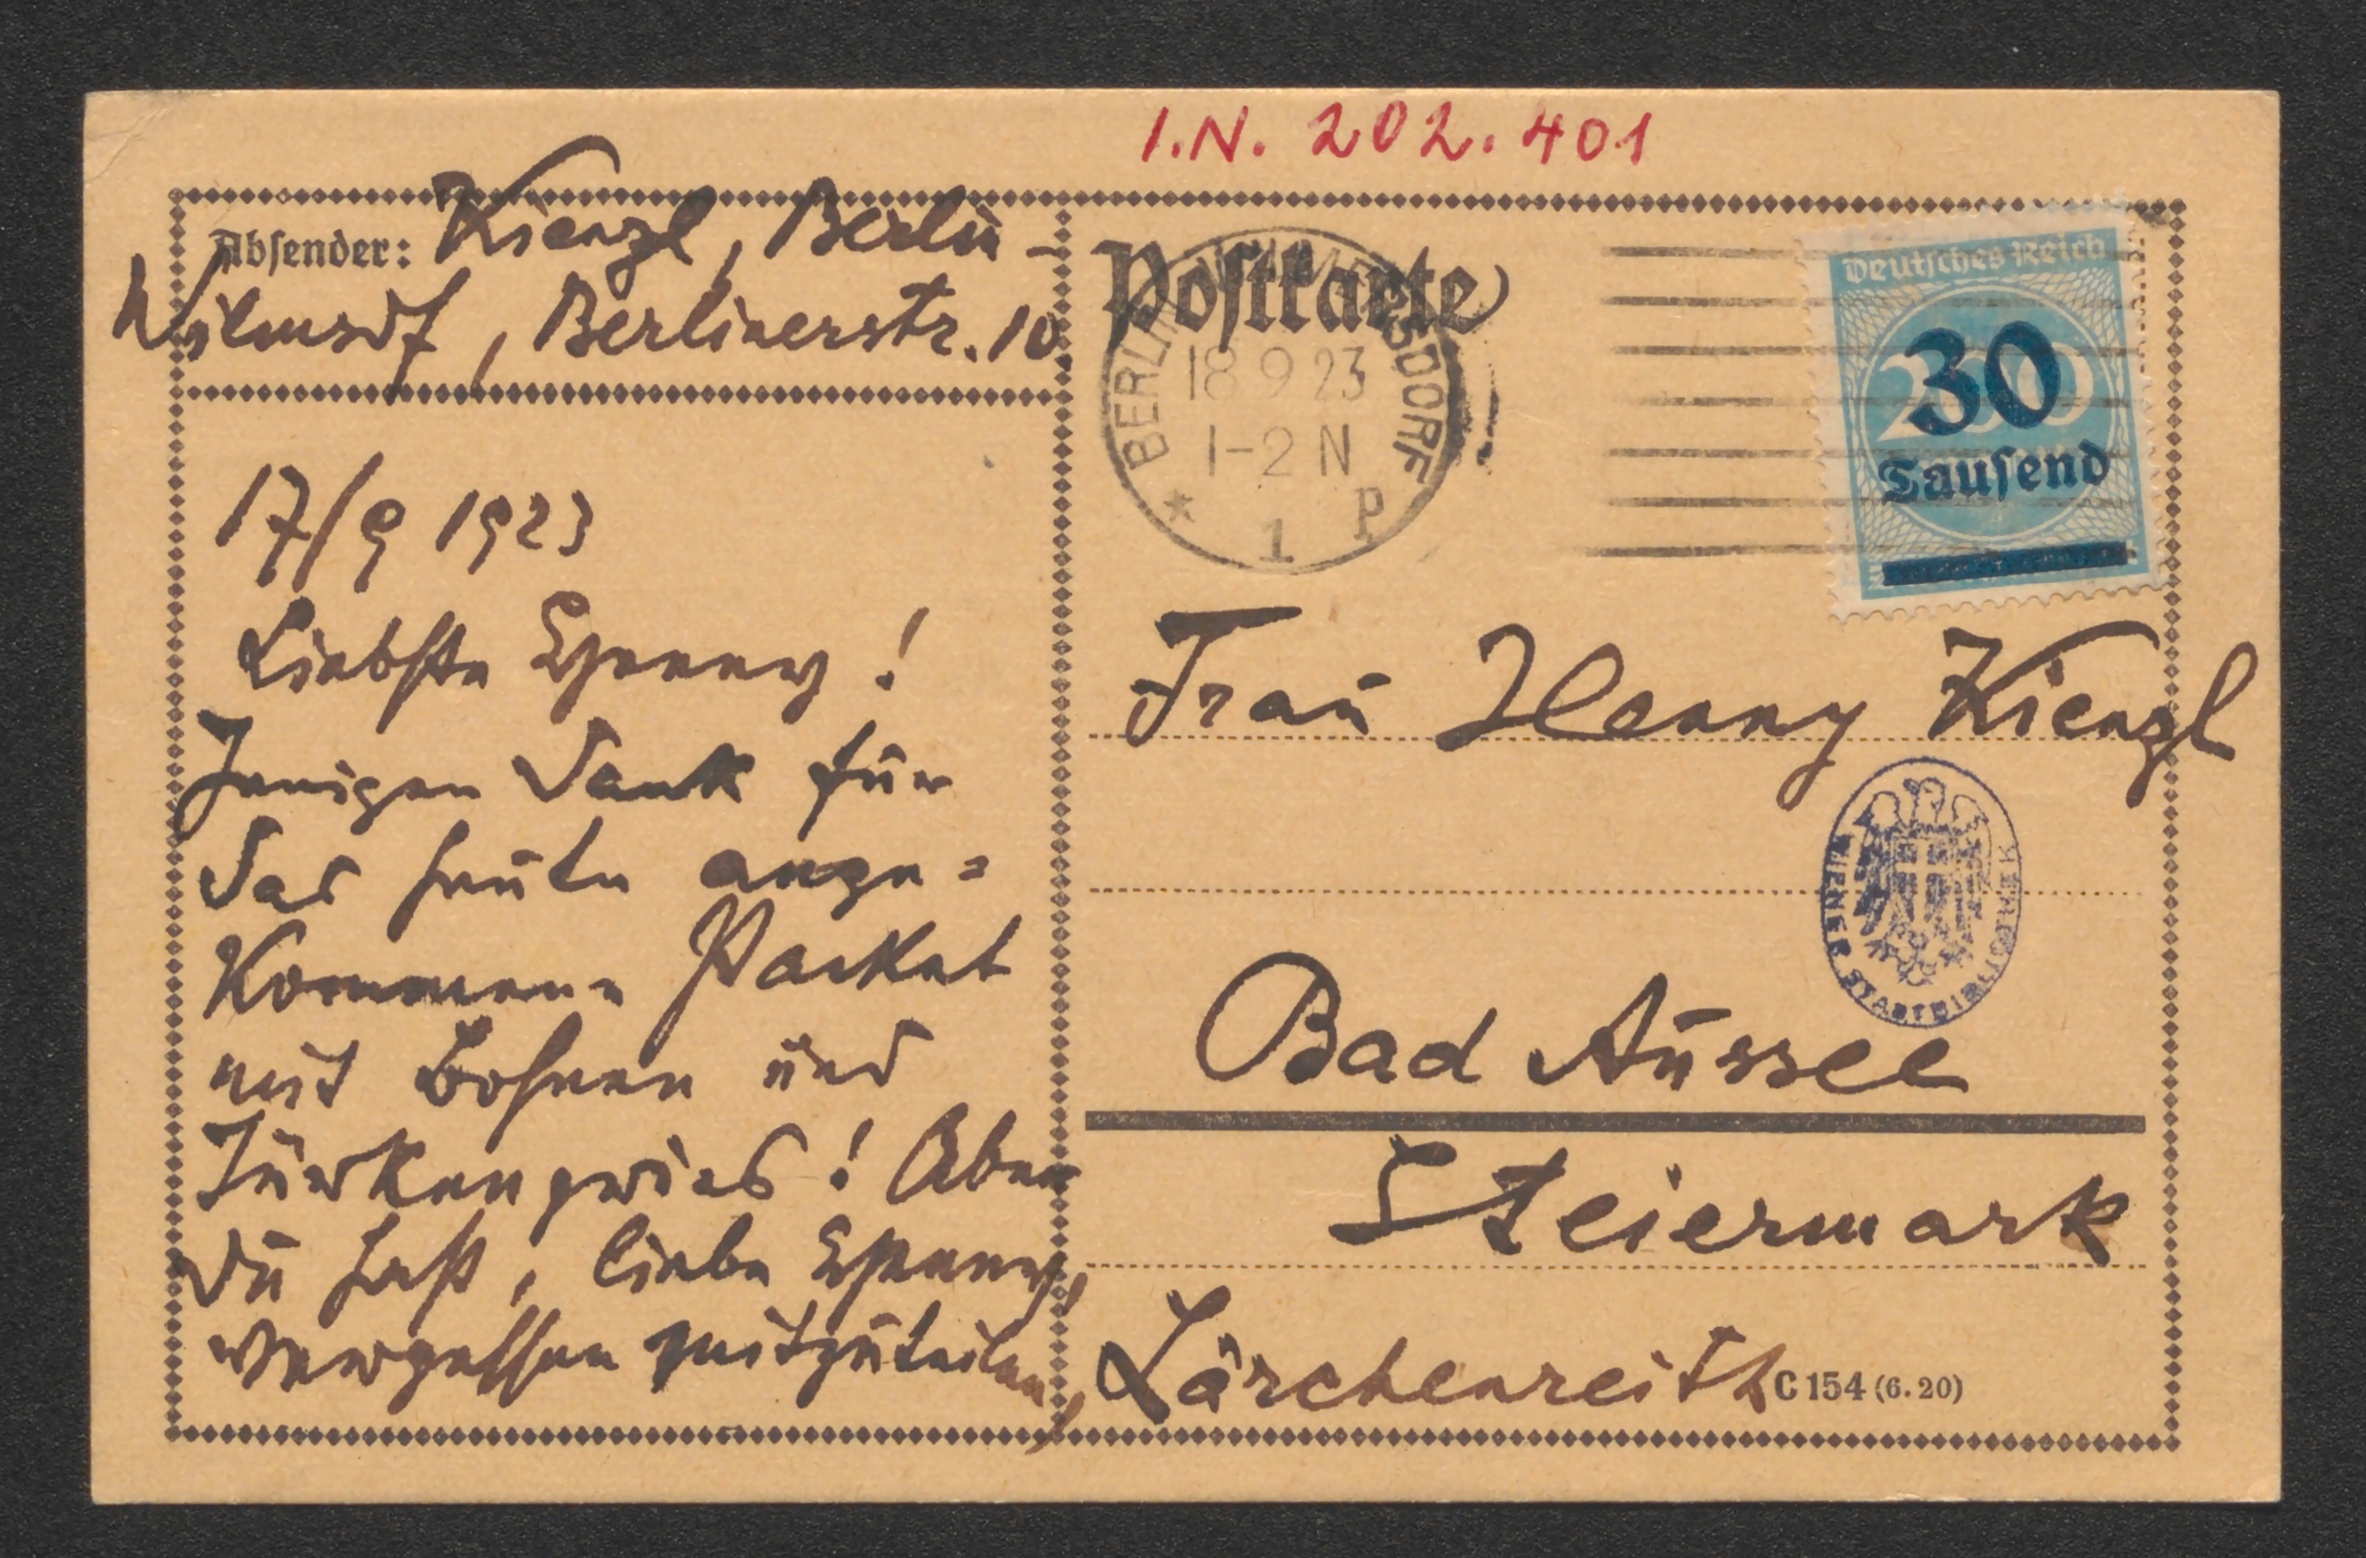 I.N. 202.401
Absender: Kienzl, Berlin-
Wilmsdf, Berlinerstr. 10.
17/9 1923
Liebste Henny!
Innigen Dank für
das heute ange=
kommene Packet
mit Bohnen und
Türkengries! Aber
Du hast, liebe Henny,
vergessen mitzuteilen,
Postkarte
BERLIN-WILMERSDORF
18 9 23
1-2 N
* 1 P
Deutsches Reich
200
30
Tausend
Frau Henny Kienzl
WIENER STADTBIBLIOTHEK
Bad Aussee
Steiermark
Lärchenreith
C 154 (6. 20)